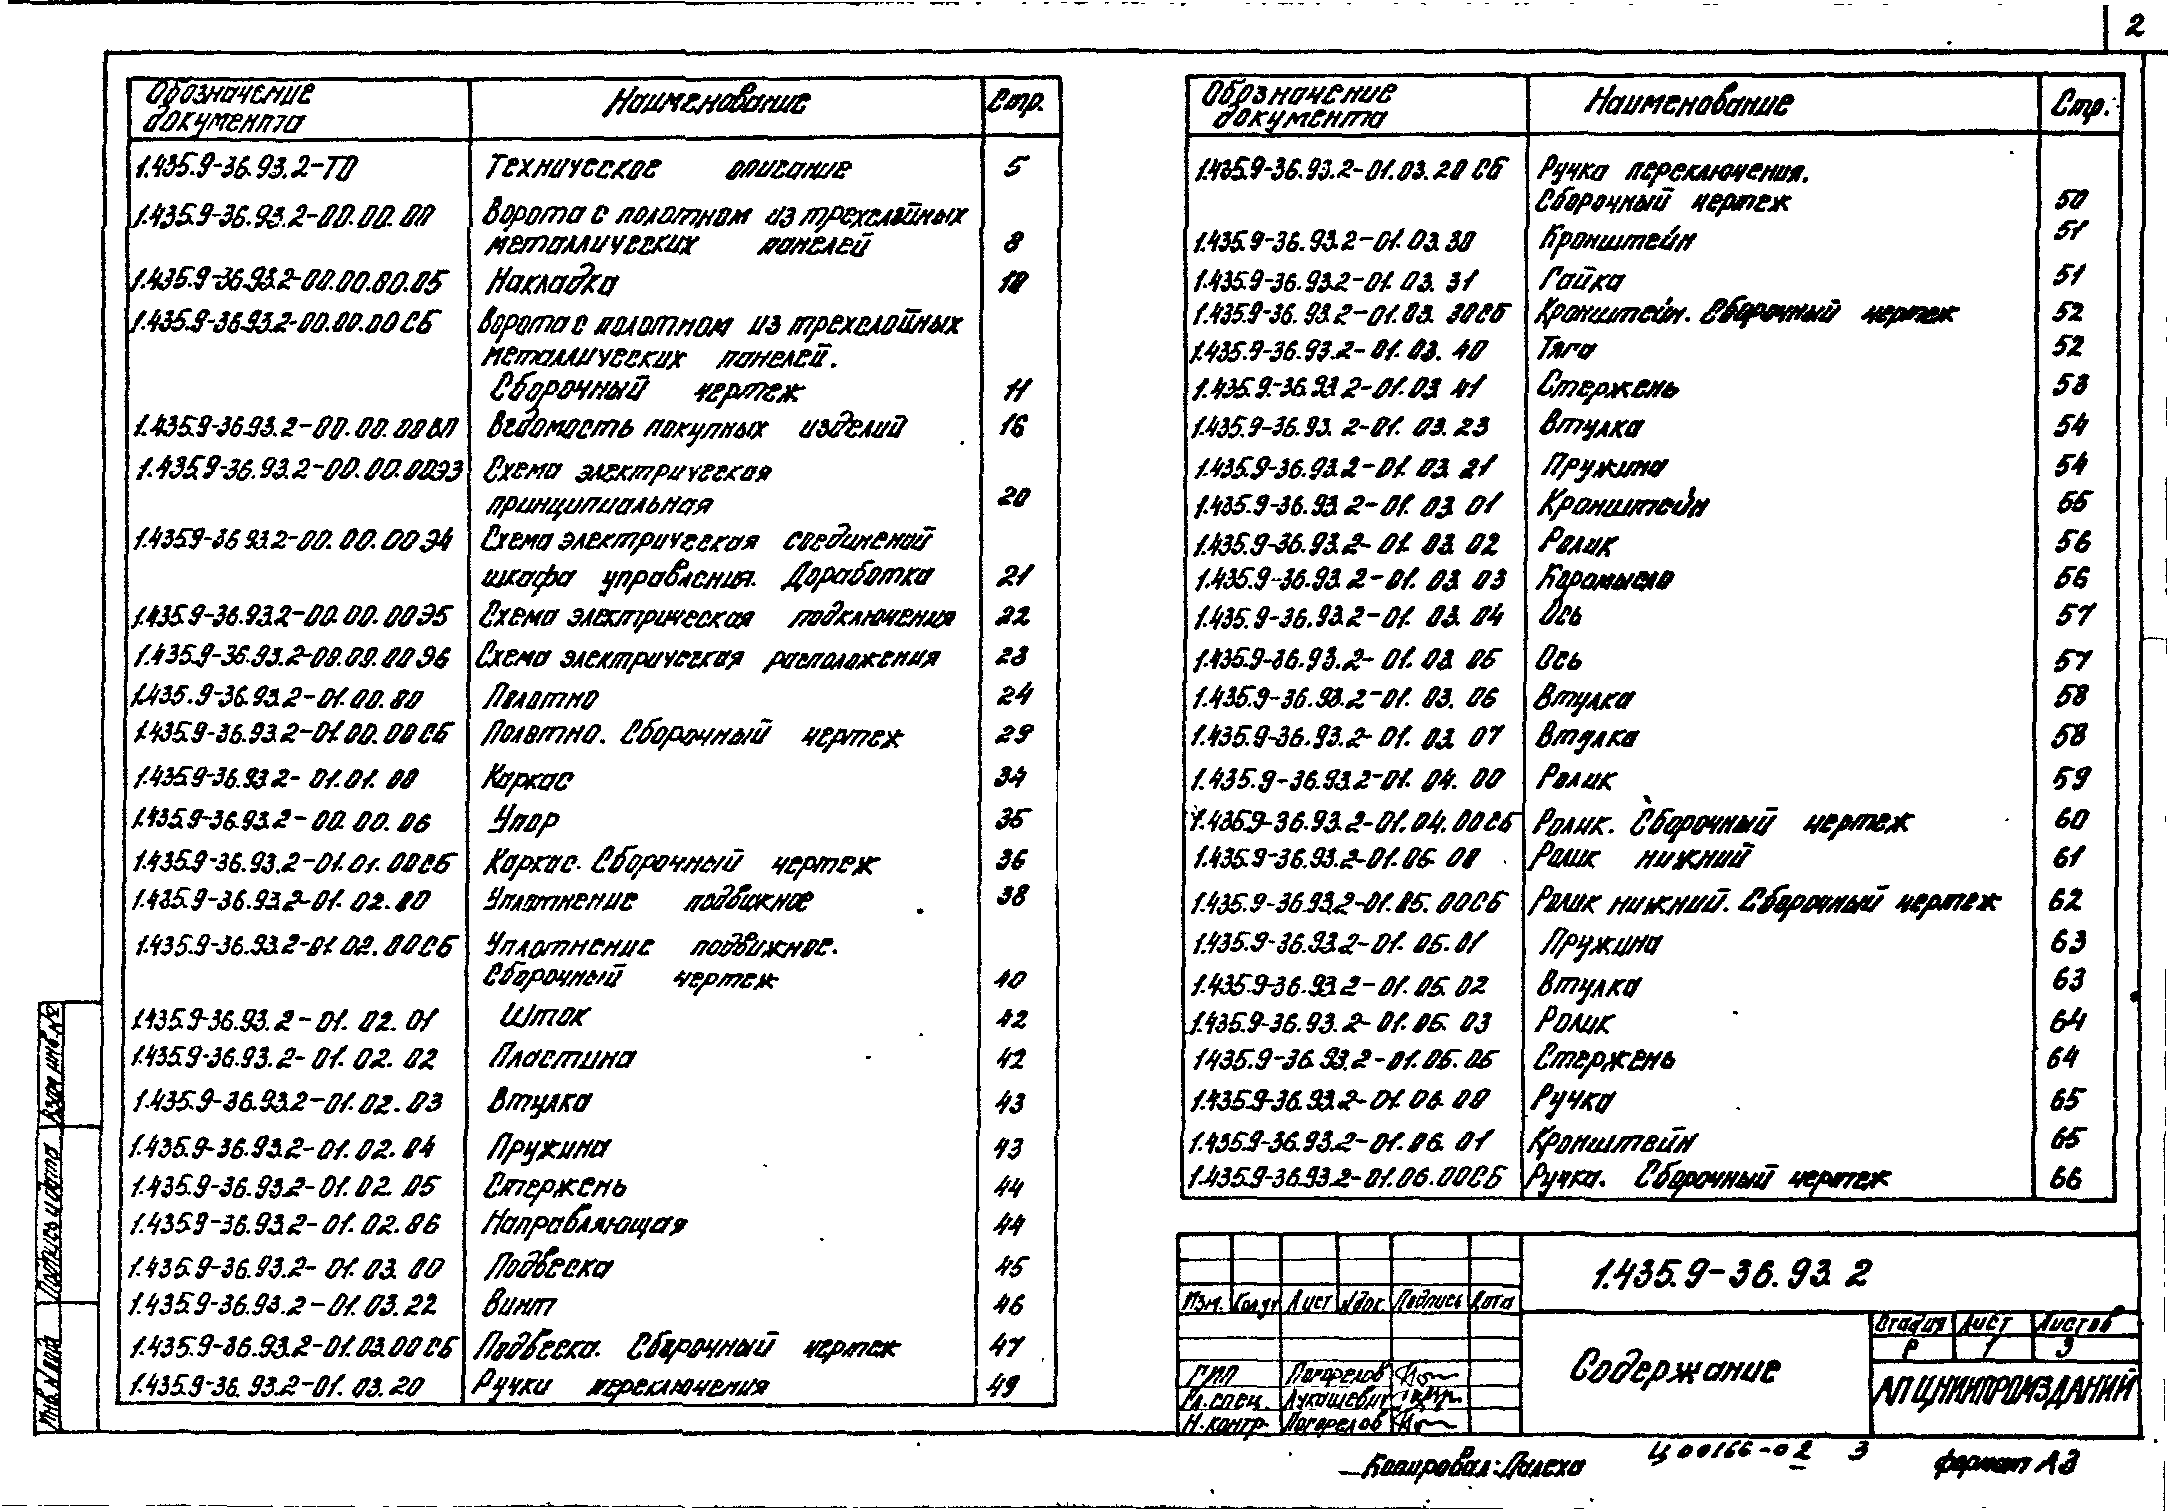 2
Обозначение документа Наименование Стр.
1.435.9-36.93.2-ТО Техническое описание 5
1.435.9-36.93.2-00.00.00 Ворота с полотном из трехслойных
металлических панелей 8
1.435.9-36.93.2-00.00.00.05 Накладка 10
1.435.9-36.93.2-00.00.00СБ Ворота с полотном из трехслойных
металлических панелей.
Сборочный чертеж 11
1.435.9-36.93.2-00.00.00ВП Ведомость покупных изделий 16
1.435.9-36.93.2-00.00.00Э3 Схема электрическая
принципиальная 20
1.435.9-36.93.2-00.00.00Э4 Схема электрическая соединений
шкафа управления. Доработка 21
1.435.9-36.93.2-00.00.00Э5 Схема электрическая подключения 22
1.435.9-36.93.2-00.00.00Э6 Схема электрическая расположения 23
1.435.9-36.93.2-01.00.00 Полотно 24
1.435.9-36.93.2-01.00.00СБ Полотно. Сборочный чертеж 29
1.435.9-36.93.2-01.01.00 Каркас 34
1.435.9-36.93.2-00.00.06 Упор 35
1.435.9-36.93.2-01.01.00СБ Каркас. Сборочный чертеж 36
1.435.9-36.93.2-01.02.00 Уплотнение подвижное 38
1.435.9-36.93.2-01.02.00СБ Уплотнение подвижное.
Сборочный чертеж 40
1.435.9-36.93.2-01.02.01 Шток 42
1.435.9-36.93.2-01.02.02 Пластина 42
1.435.9-36.93.2-01.02.03 Втулка 43
1.435.9-36.93.2-01.02.04 Пружина 43
1.435.9-36.93.2-01.02.05 Стержень 44
1.435.9-36.93.2-01.02.06 Направляющая 44
1.435.9-36.93.2-01.03.00 Подвеска 45
1.435.9-36.93.2-01.03.22 Винт 46
1.435.9-36.93.2-01.03.00СБ Подвеска. Сборочный чертеж 47
1.435.9-36.93.2-01.03.20 Ручки переключения 49
Обозначение документа Наименование Стр.
1.435.9-36.93.2-01.03.20СБ Ручка переключения.
Сборочный чертеж 50
1.435.9-36.93.2-01.03.30 Кронштейн 51
1.435.9-36.93.2-01.03.31 Гайка 51
1.435.9-36.93.2-01.03.30СБ Кронштейн. Сборочный чертеж 52
1.435.9-36.93.2-01.03.40 Тяга 52
1.435.9-36.93.2-01.03.41 Стержень 53
1.435.9-36.93.2-01.03.23 Втулка 54
1.435.9-36.93.2-01.03.21 Пружина 54
1.435.9-36.93.2-01.03.01 Кронштейн 55
1.435.9-36.93.2-01.03.02 Ролик 56
1.435.9-36.93.2-01.03.03 Коромысло 56
1.435.9-36.93.2-01.03.04 Ось 57
1.435.9-36.93.2-01.03.05 Ось 57
1.435.9-36.93.2-01.03.06 Втулка 58
1.435.9-36.93.2-01.03.07 Втулка 58
1.435.9-36.93.2-01.04.00 Ролик 59
1.435.9-36.93.2-01.04.00СБ Ролик. Сборочный чертеж 60
1.435.9-36.93.2-01.05.00 Ролик нижний 61
1.435.9-36.93.2-01.05.00СБ Ролик нижний. Сборочный чертеж 62
1.435.9-36.93.2-01.05.01 Пружина 63
1.435.9-36.93.2-01.05.02 Втулка 63
1.435.9-36.93.2-01.05.03 Ролик 64
1.435.9-36.93.2-01.05.05 Стержень 64
1.435.9-36.93.2-01.06.00 Ручка 65
1.435.9-36.93.2-01.06.01 Кронштейн 65
1.435.9-36.93.2-01.06.00СБ Ручка. Сборочный чертеж 66
Взам инв.№
Подпись и дата
Инв.№ подл
1.435.9-36.93.2
Изм. Кол.уч Лист №док Подпись Дата
Содержание
Стадия Лист Листов
Р 1 3
ГИП Погорелов
Гл.спец. Лукашевич
Н.контр. Погорелов
АП ЦНИИПРОМЗДАНИЙ
Копировал: Палеха Ц00166-02 3 формат А3